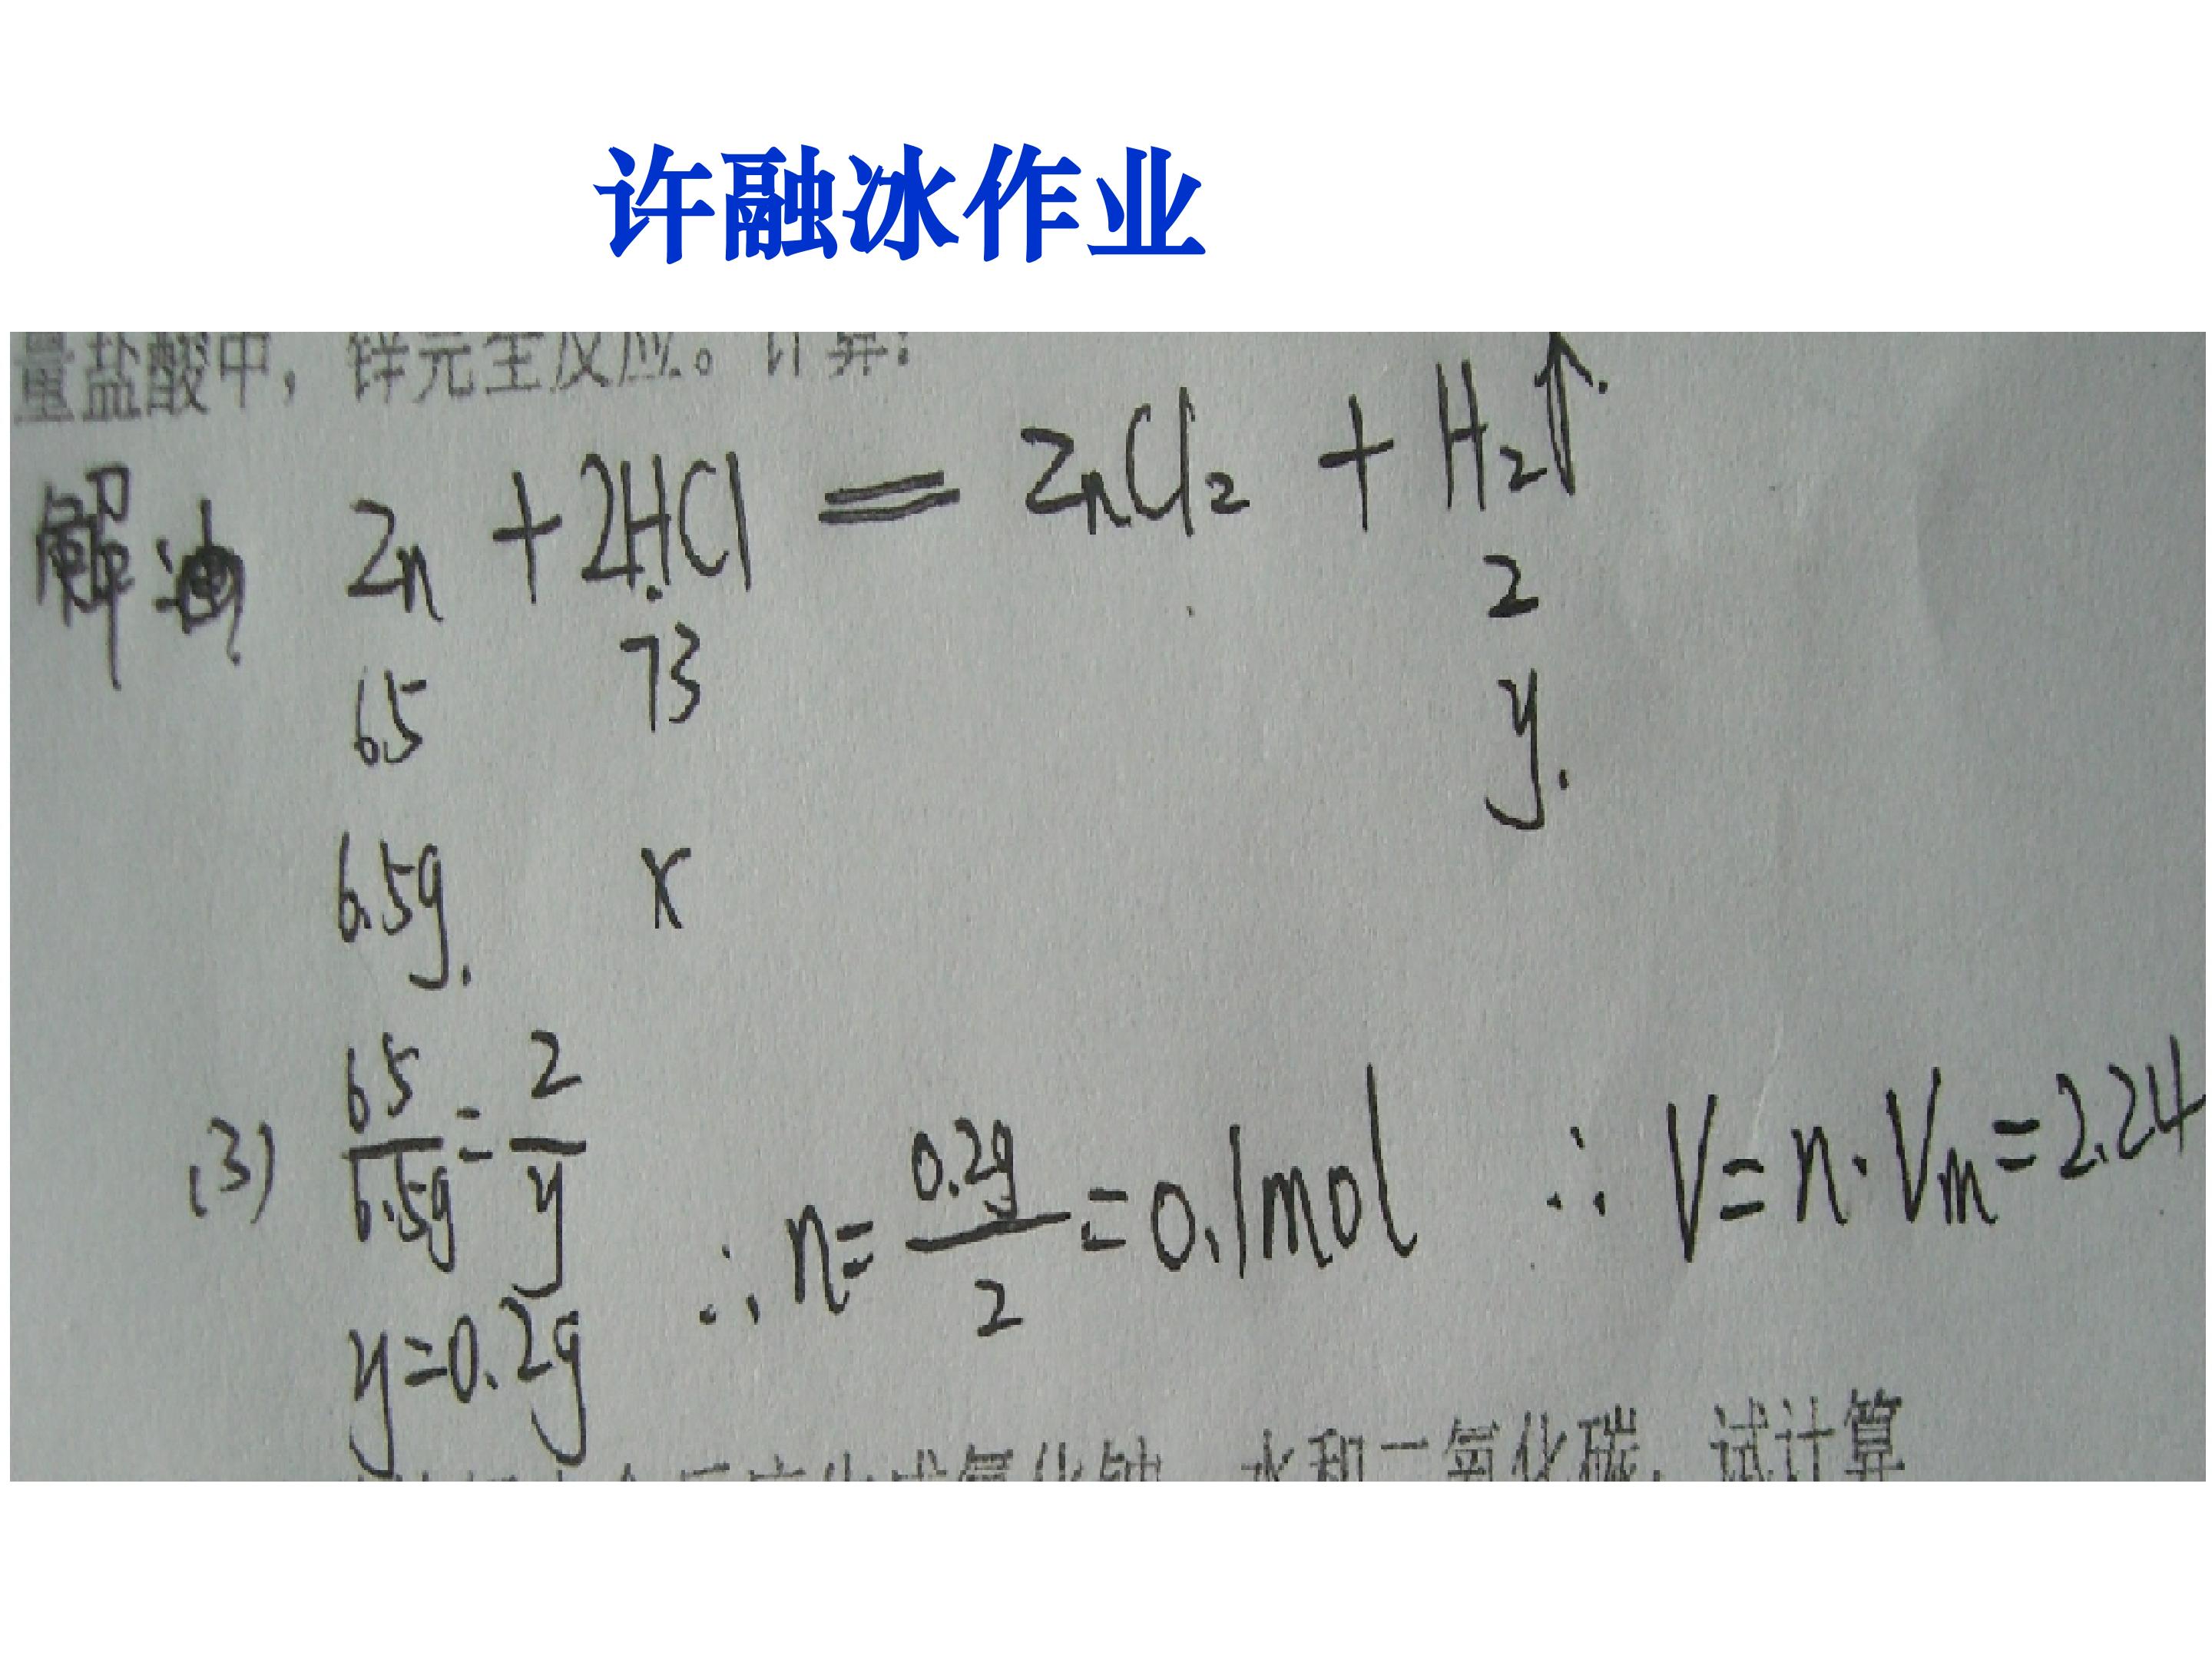 许融冰作业
量盐酸中，锌完全反应。计算：
解 Zn + 2HCl = ZnCl₂ + H₂↑
65 73 2
6.5g. x y.
(3) 65/6.5g = 2/y ∴ n = 0.2g/2 = 0.1mol ∴ V = n·Vm = 2.24
y=0.2g
水和二氧化碳，试计算